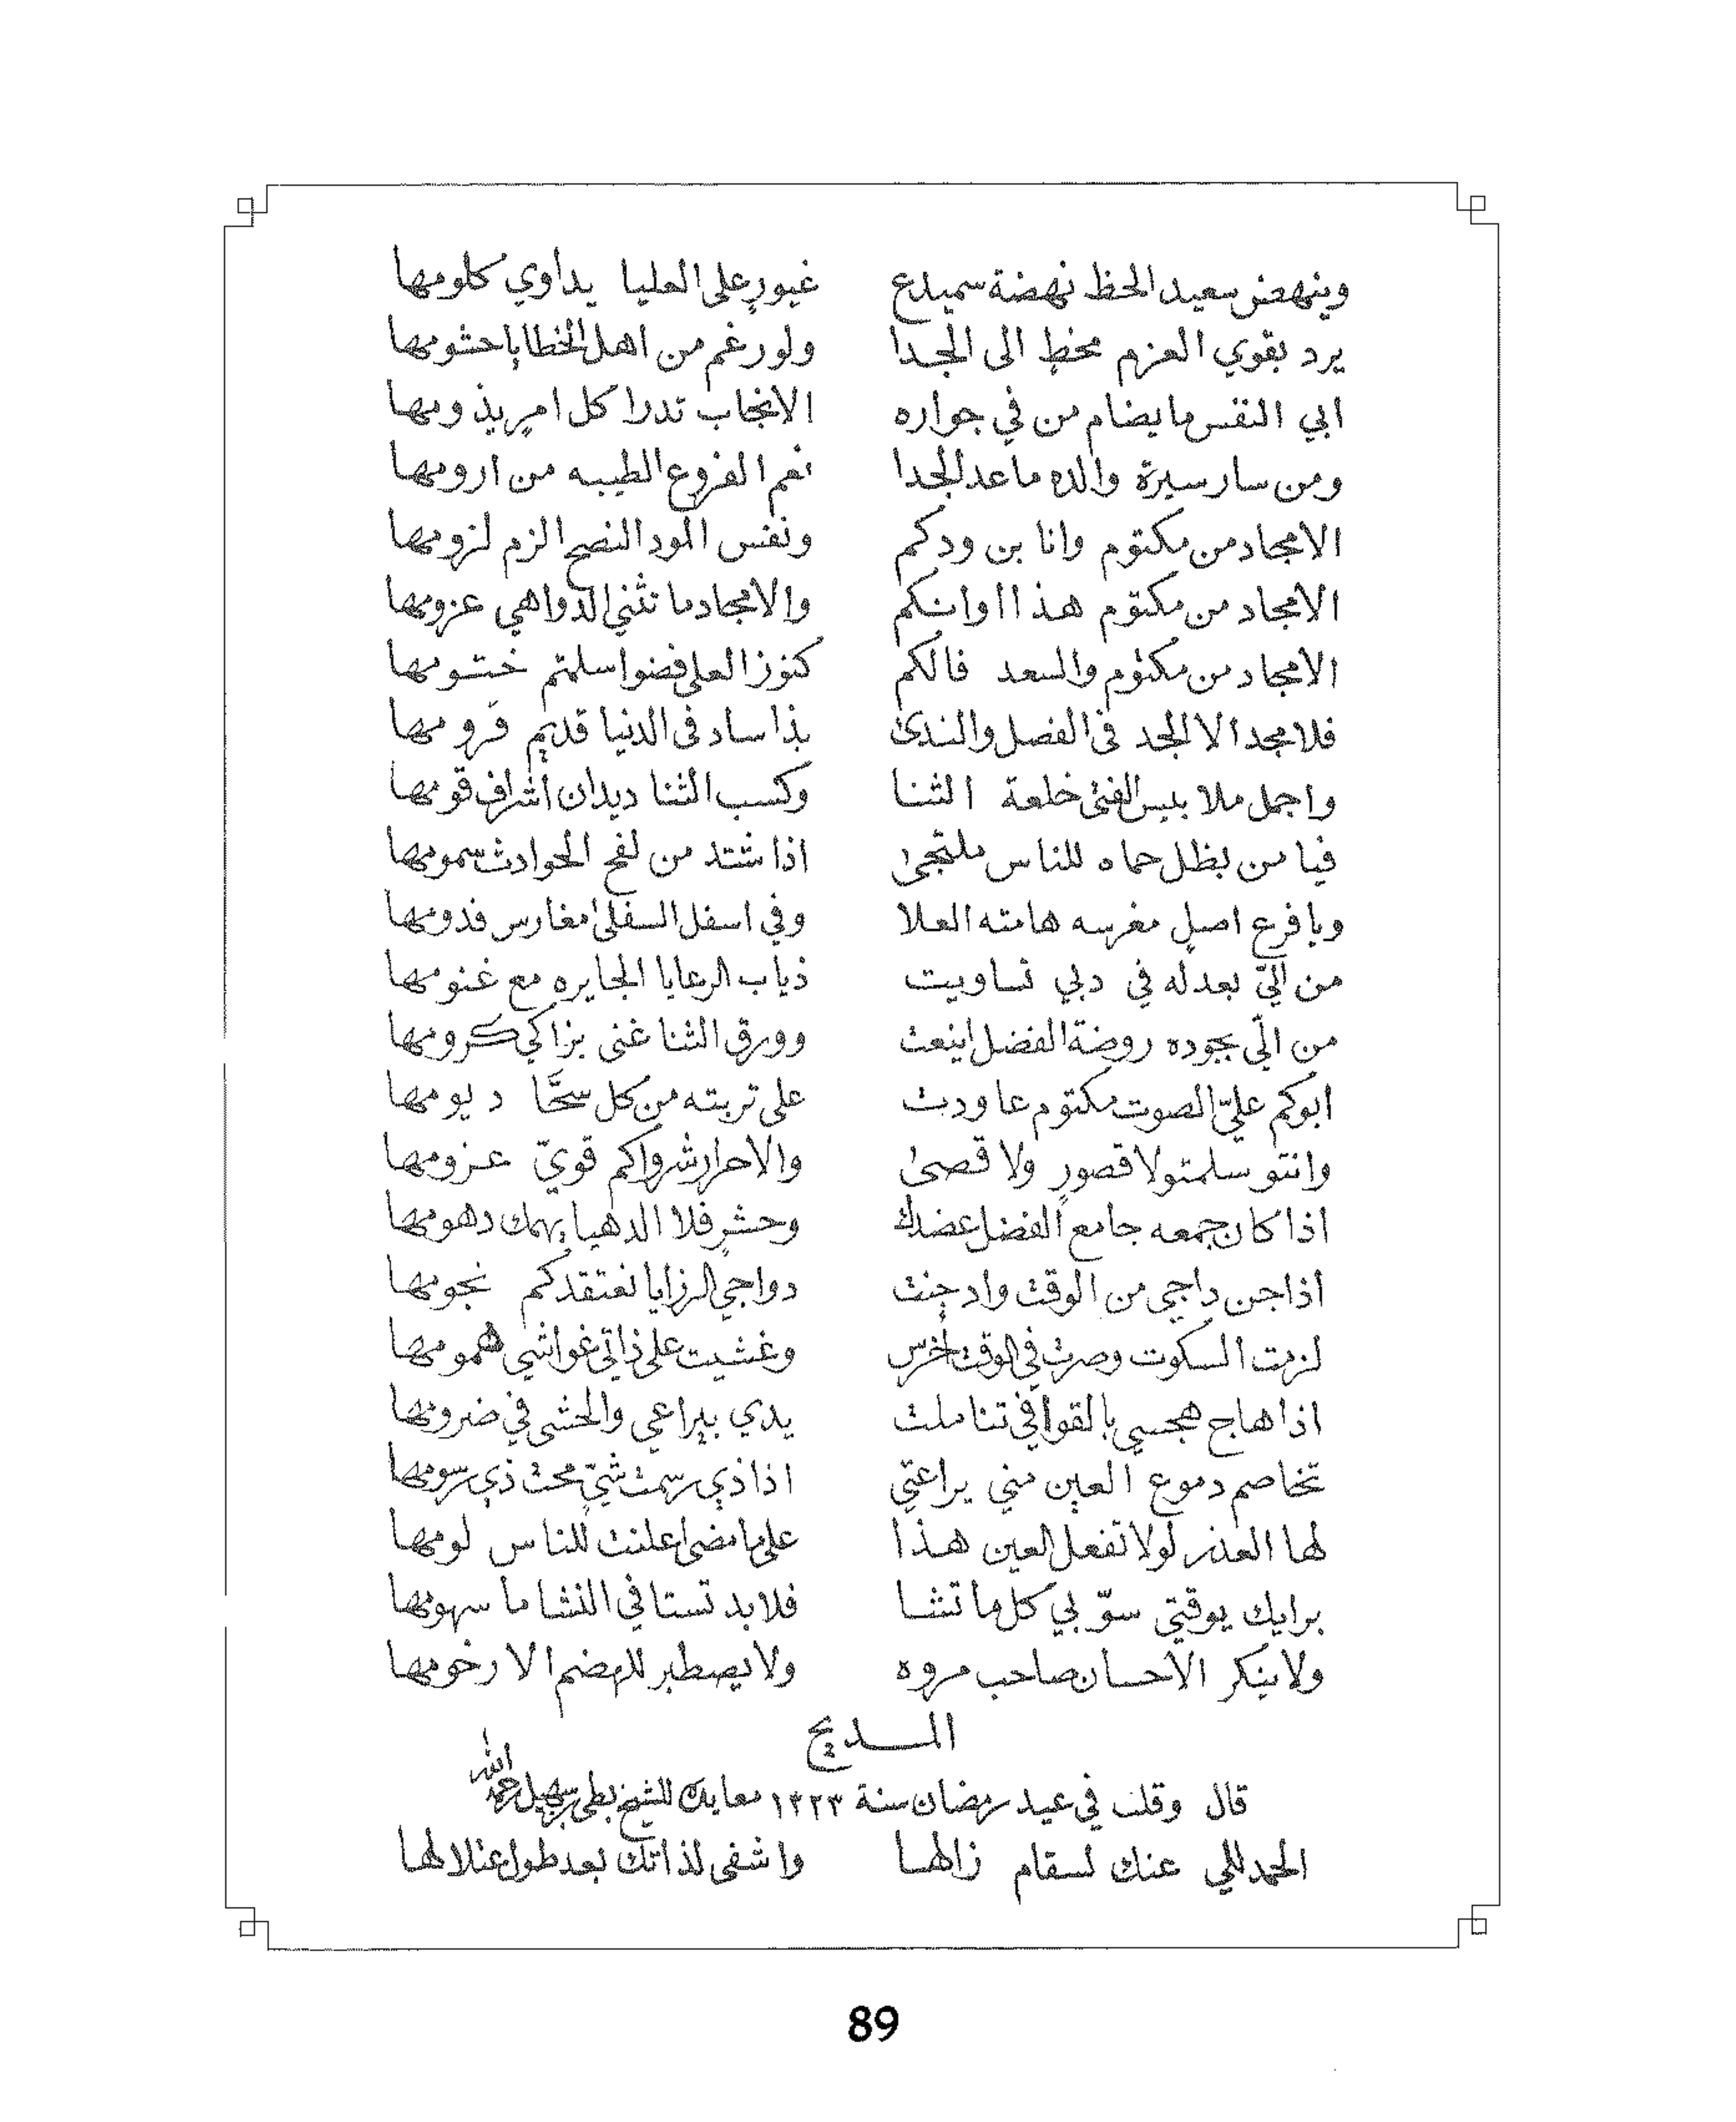 وينهض سعيد الحظ نهضة سميدع غيورٍ على العليا يداوي كلومها
يرد بقوي العزم مخطٍ الى الجدا ولو رغم من اهل الخطايا حشومها
ابي النفس ما يضام من في جواره الانجاب تدرا كل امرٍ يذومها
ومن سار سيرة والده ما عدا الجدا نعم الفروع الطيبه من ارومها
الامجاد من مكتوم وانا بن ودكم ونفس الود النصح الزم لزومها
الامجاد من مكتوم هذا اوانكم والامجاد ما تثني الدواهي عزومها
الامجاد من مكتوم والسعد فالكم كنوز العلى فضوا سلمتم ختومها
فلا مجد الا الجد في الفضل والندى بذا ساد في الدنيا قديمٍ قرومها
واجمل ملا بلبس الفتى خلعة الثنا وكسب الثنا ديدان اشراف قومها
فيا من بظل حماه للناس ملتجى اذا شتد من لفح الحوادث سمومها
ويا فرع اصلٍ مغرسه هامته العلا وفي اسفل السفلى مغارس فدومها
من الّي بعدله في دبي تساويت ذياب الرعايا الجايره مع غنومها
من الّي بجوده روضة الفضل اينعت وورق الثنا غنى بزاكي كرومها
ابوكم عليّ الصوت مكتوم عاودت على تربته من كل سحّا ديومها
وانتو سلمتو لا قصورٍ ولا قصى والاحرار شرواكم قويّ عزومها
اذا كان جمعه جامع الفضل عضدك وحشرٍ فلا الدهيا يهمك دهومها
اذا جن داجي من الوقت وادجنت دواجي الرزايا نعتقدكم نجومها
لزمت السكوت وصرت في الوقت أخرس وغشيت على ذاتي غواشي همومها
اذا هاج هجسي بالقوافي تناملت يدي بيراعي والحشى في ضرومها
تخاصم دموع العين مني يراعتي اذا ذي رسمت شيٍّ محت ذي رسومها
لها العذر لولا تفعل العين هذا على ما مضى اعلنت للناس لومها
برايك يوقتي سوّ بي كل ما تشا فلا بد تستافي النشا ما سهومها
ولا ينكر الاحسان صاحب مروه ولا يصطبر للهضم الا رخومها
المديح
قال وقلت في عيد رمضان سنة ١٣٢٣ معايدة للشيخ بطي بن سهيل رحمه الله
الحمد للي عنك لسقام زالها واشفى لذاتك بعد طول عتلالها
89